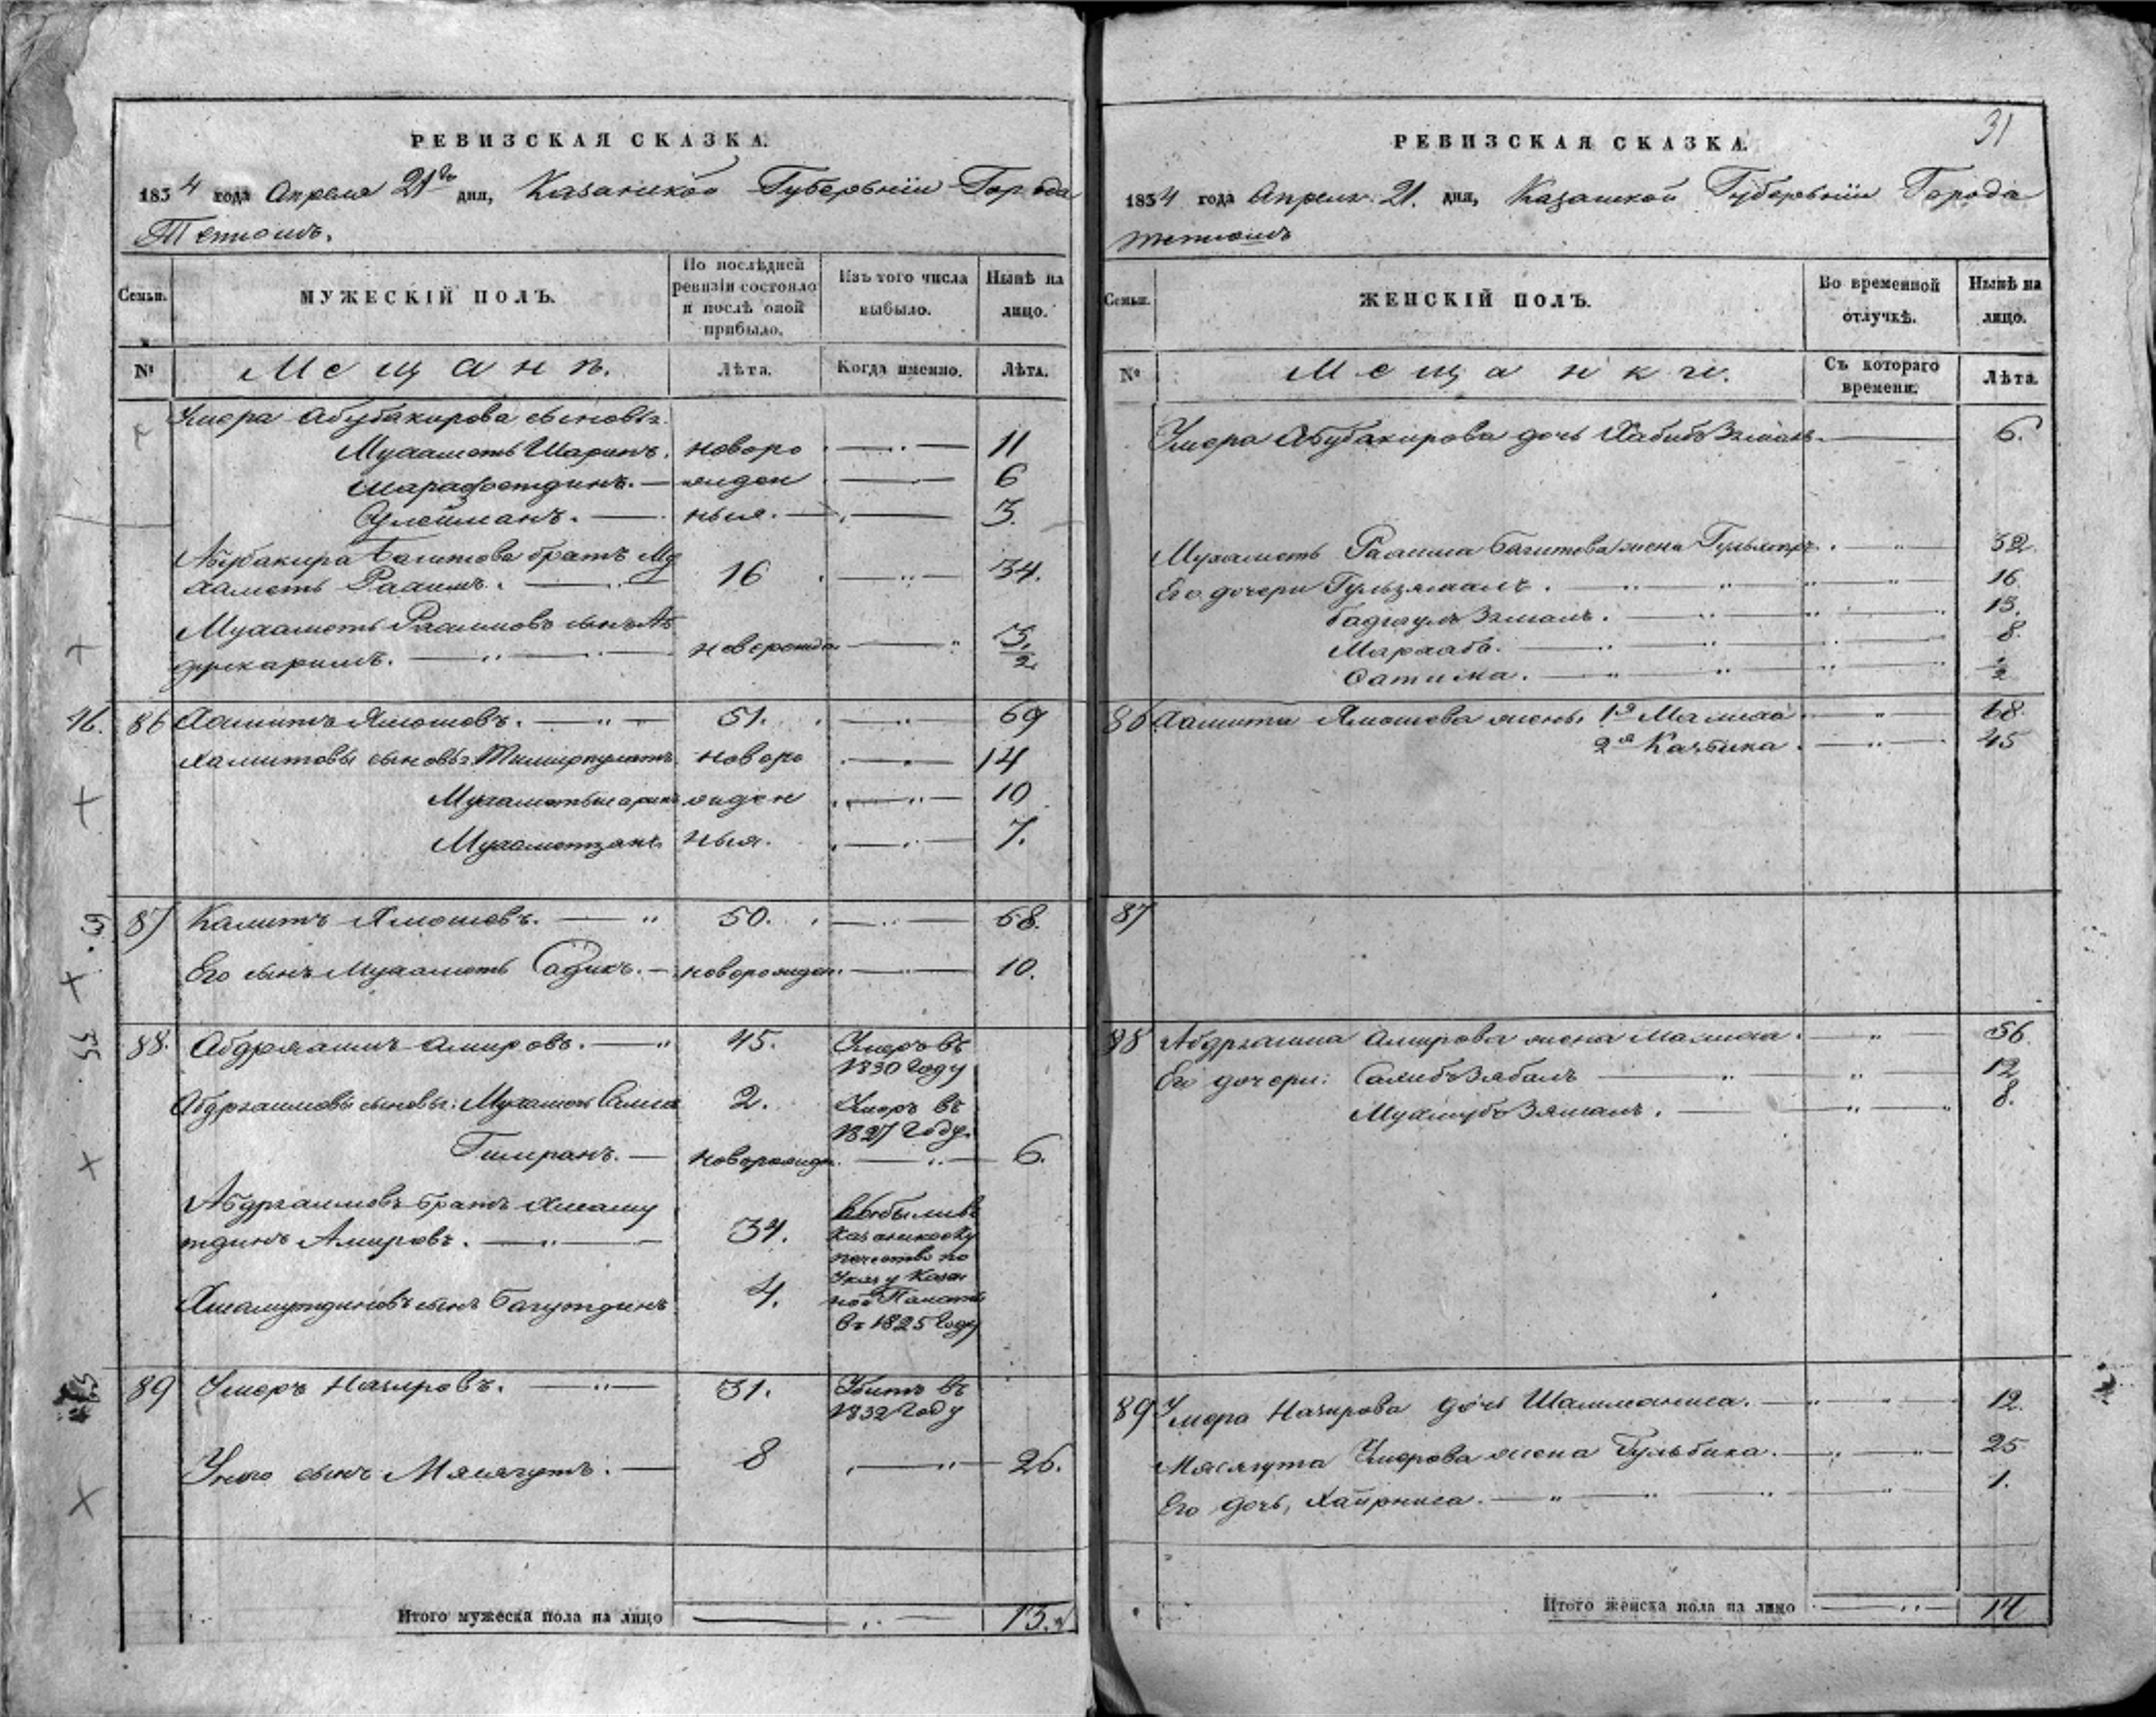 РЕВИЗСКАЯ СКАЗКА.
1834 года Апреля 21го дня, Казанской Губернiи Города
Тетюшъ.
Семьи. МУЖЕСКІЙ ПОЛЪ. По послѣдней ревизіи состояло и послѣ оной прибыло. Изъ того числа выбыло. Нынѣ на лицо.
№ Мещанъ. Лѣта. Когда именно. Лѣта.
Умера Абубакирова сыновья
Мухаметь Шарипъ. новоро 11
Шарафетдинъ. жден 6
Сулейманъ. ныя. 3.
Абубакира Багитова братъ Му
хаметь Рахимъ. 16 34.
Мухаметь Рахимовъ сынъ Аб
дрекаримъ. новорожде.
46. 86 Хамитъ Ямошевъ. 51. 69
Хамитовы сыновья новоро 14
Мухаметьшарипъ жден 10
Мухаметзянъ ныя. 7.
87 Калитъ Ямошевъ. 50. 68.
Его сынъ Мухаметь Садикъ. новорожден. 10.
88. Абдрахимъ Амировъ. 45. Умеръ въ
1830 Году
Абдрахимовы сыновья: Мухаметь 2. Умеръ въ
1827 Году.
Гимранъ. новорожде. 6.
Абдрахимовъ братъ Хисаму
тдинъ Амировъ. 34. выбыли въ
Казанское Ку
печество по
Указу Казен
ной Палаты
въ 1825 Году
Хисамутдиновъ сынъ Багутдинъ 4.
89 Умеръ Назировъ. 31. Убитъ въ
1832 Году
У него сынъ Мясягутъ. 8 26.
Итого мужеска пола на лицо 13.
31
РЕВИЗСКАЯ СКАЗКА.
1834 года Апреля 21. дня, Казанской Губернiи Города
Тетюшъ
Семьи. ЖЕНСКІЙ ПОЛЪ. Во временной отлучкѣ. Нынѣ на лицо.
№ Мещанки. Съ котораго времени. Лѣта.
Умера Абубакирова дочь 6.
Мухаметь Рахима Багитова жена 32.
Его дочери 16
13.
8.
86 Хамита Ямошева жены 1я 68.
2я Казбика 45
87
88 Абдрахима Амирова жена 56
Его дочери: 12
8.
89 Умера Назирова дочь 12.
Мясягута Умерова жена Гульбика. 25
Его дочь, Хайрниса. 1.
Итого женска пола на лицо 14